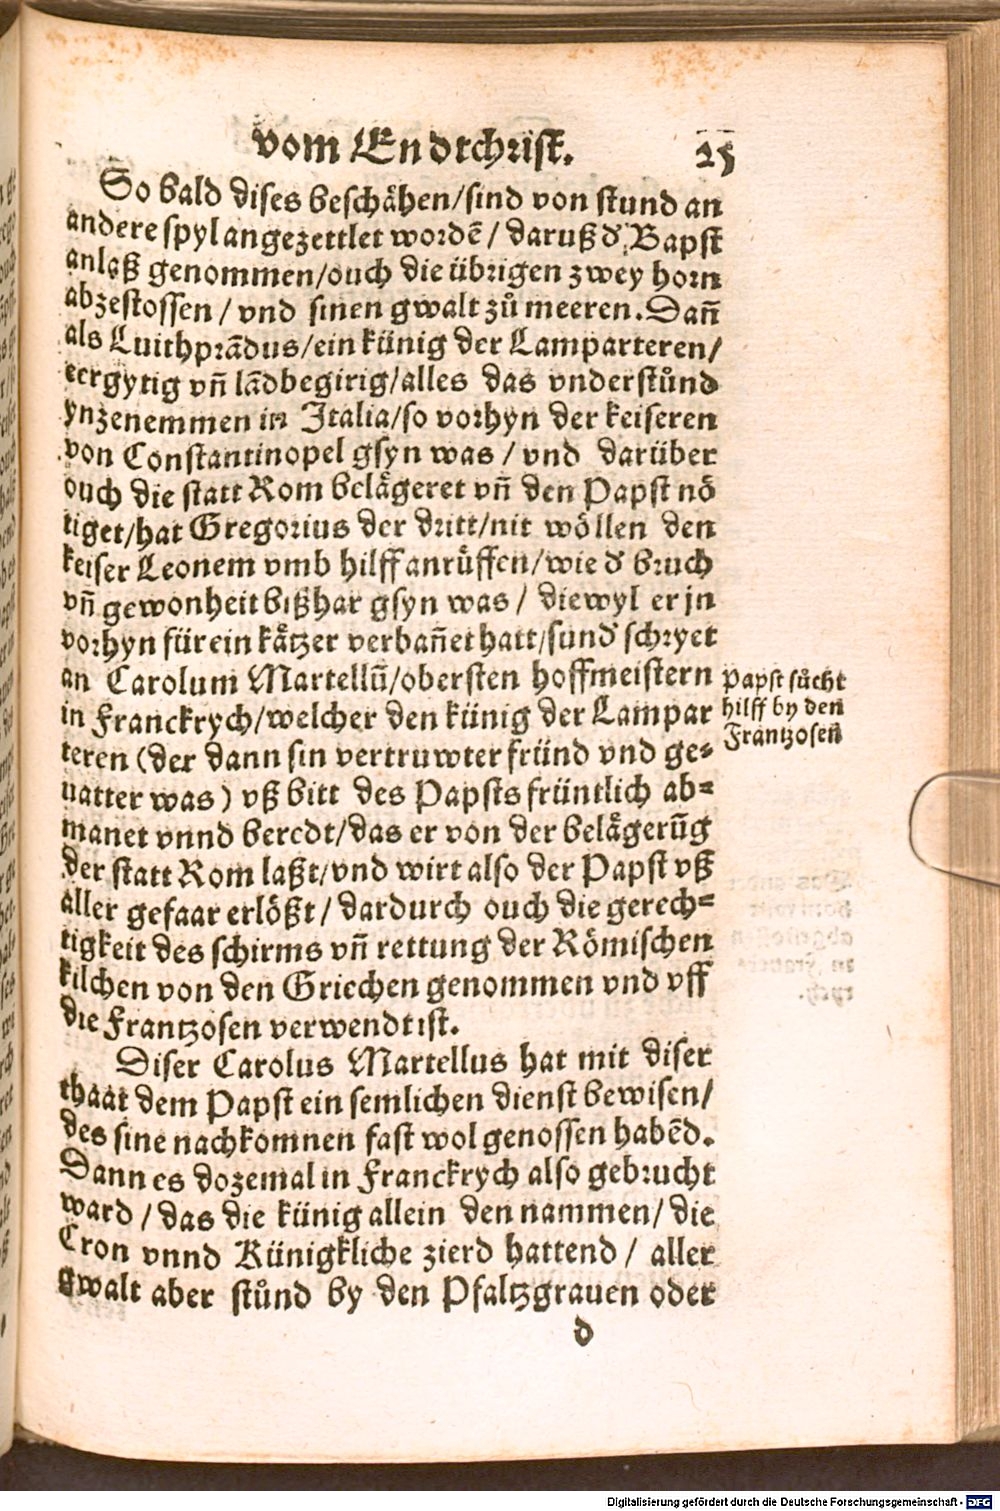 vom Endtchrist. 25
So bald dises beschähen/sind von stund an
andere spyl angezettlet wordē/ daruß d' Bapst
anlaß genommen/ouch die übrigen zwey horn
abzestossen/ vnd sinen gwalt zů meeren. Dañ
als Luithprādus/ein künig der Lamparteren/
eergytig vñ lādbegirig/alles das vnderstůnd
ynzenemmen in Italia/so vorhyn der keiseren
von Constantinopel gsyn was/ vnd darüber
ouch die statt Rom belägeret vñ den Papst nö
tiget/hat Gregorius der dritt/nit wöllen den
keiser Leonem vmb hilff anrůffen/wie d' bruch
vñ gewonheit bißhar gsyn was/ diewyl er jn
vorhyn für ein kätzer verbañet hatt/sund' schryet
an Carolum Martellū/obersten hoffmeistern
in Franckrych/welcher den künig der Lampar
teren (der dann sin vertruwter fründ vnd ge-
uatter was) vß bitt des Papsts früntlich ab-
manet vnnd beredt/das er von der belägerūg
der statt Rom laßt/vnd wirt also der Papst vß
aller gefaar erlößt/ dardurch ouch die gerech-
tigkeit des schirms vñ rettung der Römischen
kilchen von den Griechen genommen vnd vff
die Frantzosen verwendt ist.
Papst sůcht
hilff by den
Frantzosen
Diser Carolus Martellus hat mit diser
thaat dem Papst ein semlichen dienst bewisen/
des sine nachkomnen fast wol genossen habēd.
Dann es dozemal in Franckrych also gebrucht
ward/ das die künig allein den nammen/ die
Cron vnnd Künigkliche zierd hattend/ aller
gwalt aber stůnd by den Pfaltzgrauen oder
d
Digitalisierung gefördert durch die Deutsche Forschungsgemeinschaft - DFG